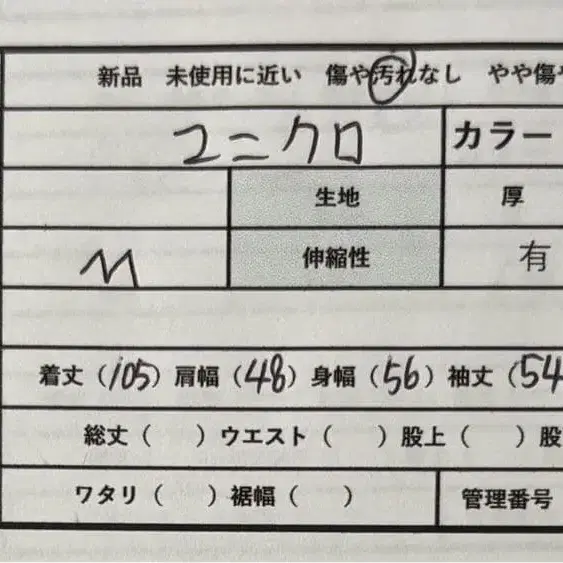 新品 未使用に近い 傷や汚れなし やや傷や
ユニクロ カラー
生地 厚
M 伸縮性 有
着丈(105)肩幅(48)身幅(56)袖丈(54
総丈( )ウエスト( )股上( )股
ワタリ( )裾幅( ) 管理番号